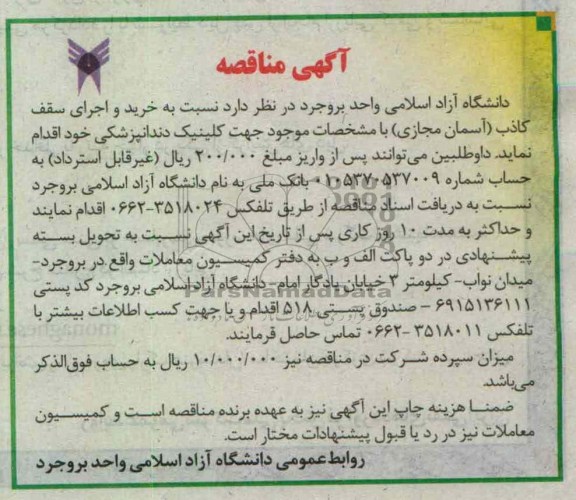 آگهی مناقصه
دانشگاه آزاد اسلامی واحد بروجرد در نظر دارد نسبت به خرید و اجرای سقف
کاذب (آسمان مجازی) با مشخصات موجود جهت کلینیک دندانپزشکی خود اقدام
نماید. داوطلبین می‌توانند پس از واریز مبلغ ۲۰۰/۰۰۰ ریال (غیرقابل استرداد) به
حساب شماره ۰۱۰۵۳۷۰۵۳۷۰۰۹ بانک ملی به نام دانشگاه آزاد اسلامی بروجرد
نسبت به دریافت اسناد مناقصه از طریق تلفکس ۳۵۱۸۰۲۴-۰۶۶۲ اقدام نمایند
و حداکثر به مدت ۱۰ روز کاری پس از تاریخ این آگهی نسبت به تحویل بسته
پیشنهادی در دو پاکت الف و ب به دفتر کمیسیون معاملات واقع در بروجرد-
میدان نواب- کیلومتر ۳ خیابان یادگار امام- دانشگاه آزاد اسلامی بروجرد کد پستی
ParsNamadData
۶۹۱۵۱۳۶۱۱۱ – صندوق پستی ۵۱۸ اقدام و یا جهت کسب اطلاعات بیشتر با
تلفکس ۳۵۱۸۰۱۱ -۰۶۶۲ تماس حاصل فرمایند.
میزان سپرده شرکت در مناقصه نیز ۱۰/۰۰۰/۰۰۰ ریال به حساب فوق‌الذکر
می‌باشد.
ضمنا هزینه چاپ این آگهی نیز به عهده برنده مناقصه است و کمیسیون
معاملات نیز در رد یا قبول پیشنهادات مختار است.
روابط عمومی دانشگاه آزاد اسلامی واحد بروجرد